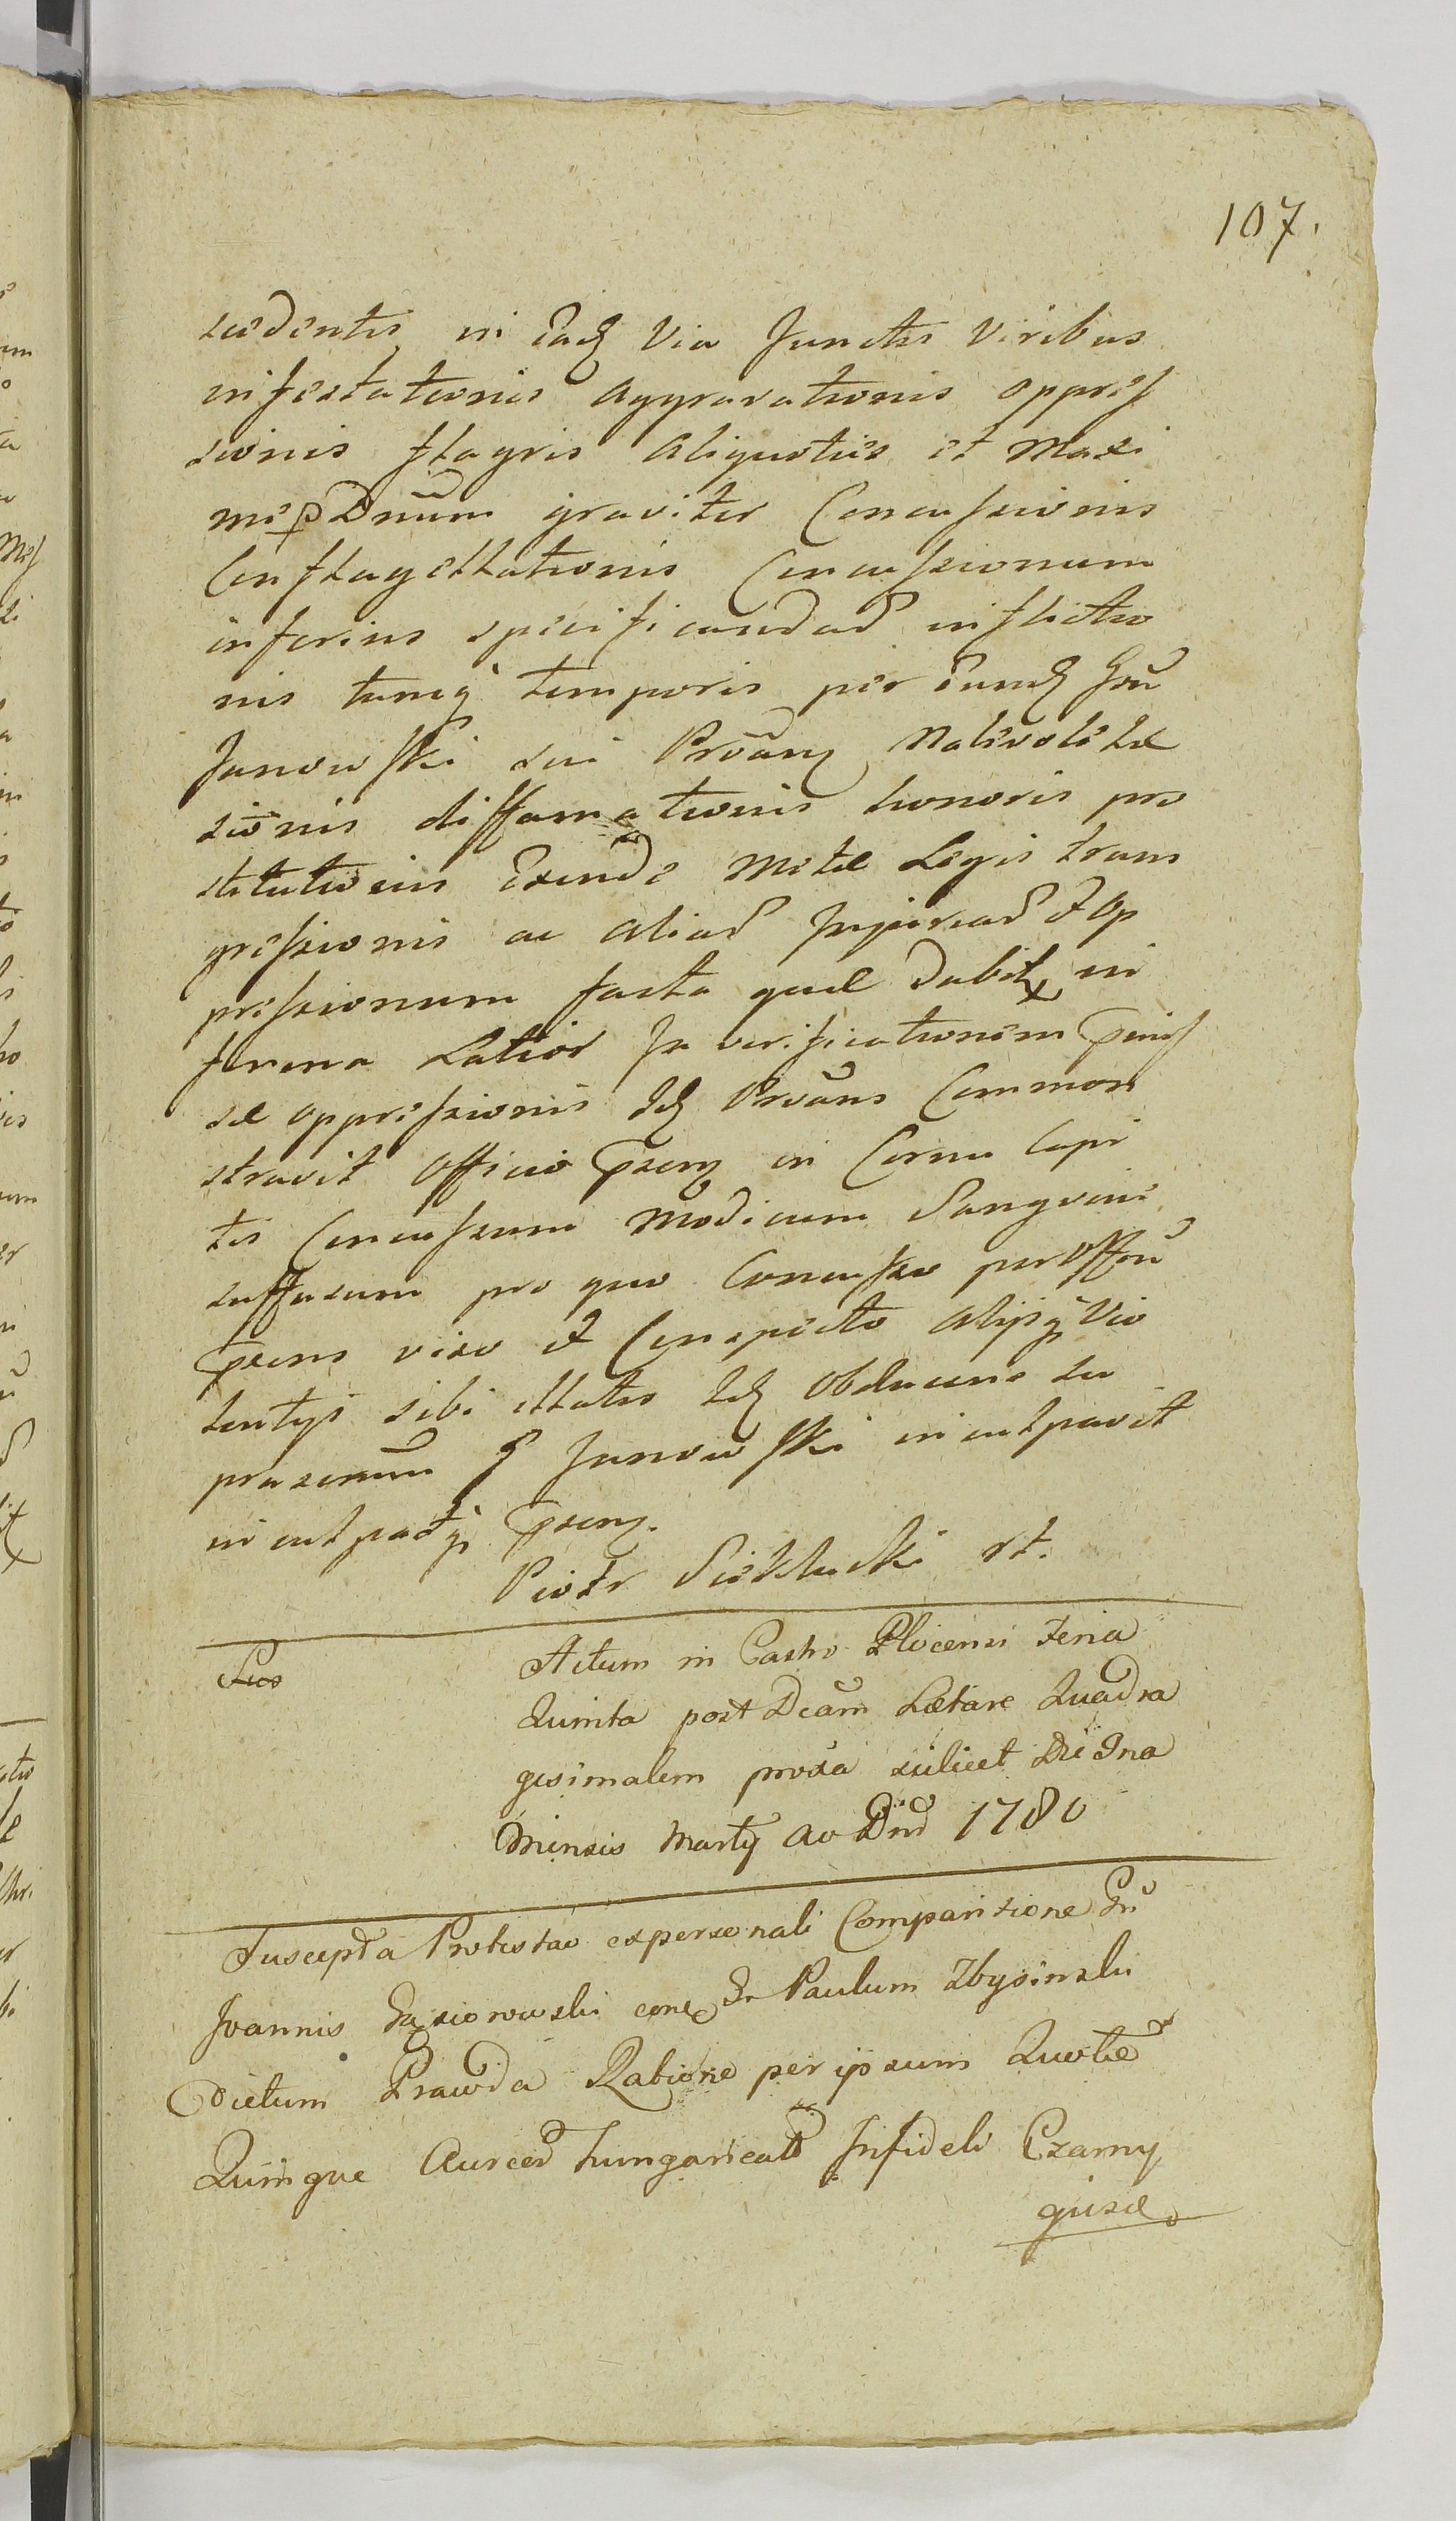 107.
sedentis in Eadę Via Junctis Viribus
infestationis aggravationis oppres
sionis flagris aliquoties et Maxi
me p Dnum graviter Concussionis
Conflagellationis Concussionum
inferius specificandar inflictio
nis tumq temporis per Eundę Grū
Janowski sui Prōāng Malevole Læ
sionis diffamationis honoris pro
stitutionis Exinde Metæ Legis trans
gressionis ac aliar Injuriar et Op
pressionum facta quæ dabit in
forma Latior In verificationem
sæ oppressionis Idę Prōāns Common
stravit Officio Pseng in Cornu Capi
tis Concussum Modicum Sangvine
suffusum pro quo Concusso per Offiū
Psens viso et Conspecto Alijsq Vio
lentijs sibi illatis Idę Obducens su
praxenum G Janowski inculpavit
inculpatq Pseng.
Piotr Sieklucki rt.
Sus
Actum in Castro Plocensi Feria
Quinta post Dcam Lætare Quadra
gesimalem proxa scilicet Die 9na
Mensis Martij Ao Dni 1780
Suscepta Protestao ex personali Comparitione Gū
Joannis Gąsiorowski conę Gr Paulum Zbysinski
Dictum Prawda Ratione per ipsum
Quinque Aureor Hungaricalł Infideli Czarny
gusæ